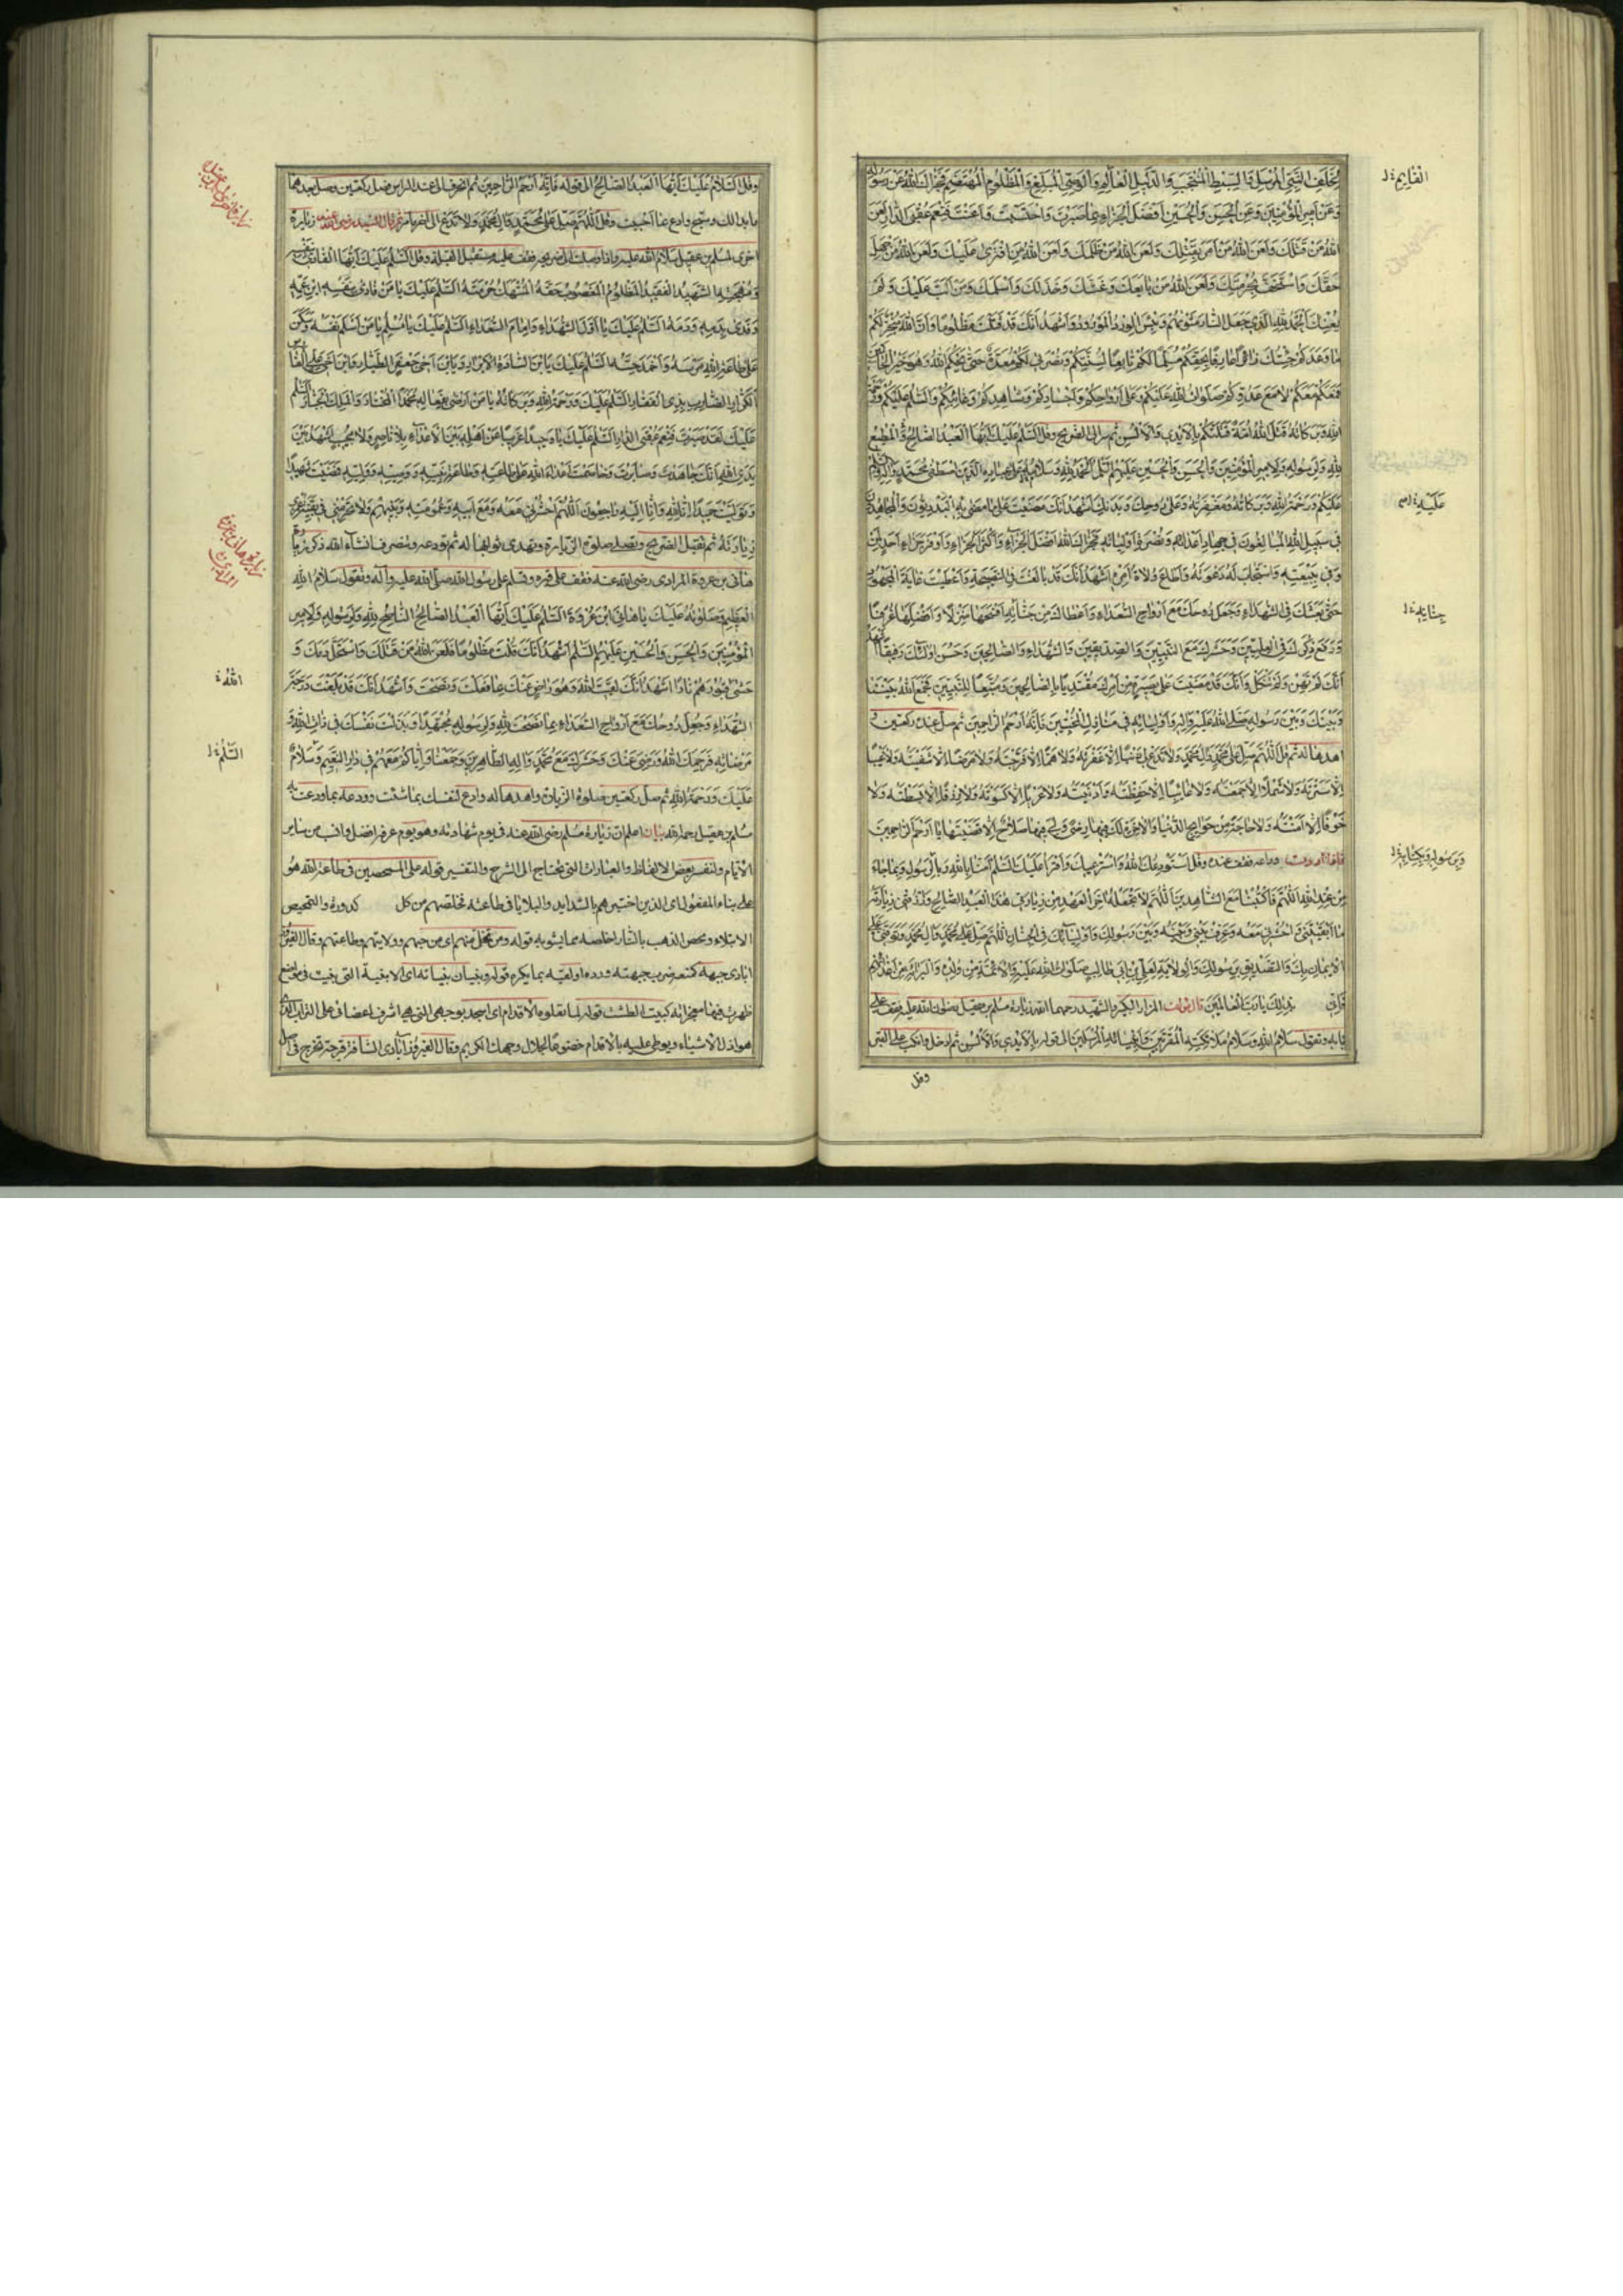 لخلف النبي المرسل والسبط المنتجب والدليل العالم والوصي المبلغ والمظلوم المهتضم فجزاك الله عن رسوله
وعن امير المؤمنين وعن الحسن والحسين افضل الجزاء بما صبرت واحتسبت واعنت فنعم عقبى الدار لعن
الله من قتلك ولعن الله من امر بقتلك ولعن الله من ظلمك ولعن الله من افترى عليك ولعن الله من جهل
حقك واستخف بحرمتك ولعن الله من بايعك وغشك وخذلك واسلمك ومن الب عليك ولم
يعنك الحمد لله الذي جعل النار مثويهم وبئس الورد المورود واشهد انك قد قتلت مظلوما وان الله منجز لكم
ما وعدكم جئتك زائرا عارفا بحقكم مسلما لكم تابعا لسنتكم ونصرتي لكم معدة حتى يحكم الله وهو خير الحاكمين
فمعكم معكم لا مع عدوكم صلوات الله عليكم وعلى ارواحكم واجسادكم وشاهدكم وغائبكم والسلم عليكم ورحمة
الله وبركاته قتل الله امة قتلتكم بالايدي والالسن ثم سر الى الضريح وقل السلم عليك ايها العبد الصالح والمطيع
لله ولرسوله ولامير المؤمنين والحسن والحسين عليهم السلم الحمد لله وسلام على عباده الذين اصطفى محمد واله والسلم
عليكم ورحمة الله وبركاته ومغفرته وعلى روحك وبدنك اشهد انك مضيت على ما مضى به البدريون والمجاهدون
في سبيل الله المبالغون في جهاد اعدائه ونصرة اوليائه فجزاك الله افضل الجزاء واكثر الجزاء واوفر جزاء احد ممن
وفى ببيعته واستجاب له دعوته واطاع ولاة امره اشهد انك قد بالغت في النصيحة واعطيت غاية المجهود
حتى بعثك في الشهداء وجعل روحك مع ارواح السعداء واعطاك من جنانه افسحها منزلا وافضلها غرفا
ورفع ذكرك في العليين وحشرك مع النبيين والصديقين والشهداء والصالحين وحسن اولئك رفيقا اشهد
انك لم تهن ولم تنكل وانك قد مضيت على بصيرة من امرك مقتديا بالصالحين ومتبعا للنبيين فجمع الله بيننا
وبينك وبين رسوله صلى الله عليه واله واوليائه في منازل المخبتين فانه ارحم الراحمين ثم صل عنده ركعتين و
اهدها له ثم قل اللهم صل على محمد وال محمد ولا تدع لي ذنبا الا غفرته ولا هما الا فرجته ولا مرضا الا شفيته ولا عيبا
الا سترته ولا شملا الا جمعته ولا غائبا الا حفظته وادنيته ولا عريا الا كسوته ولا رزقا الا بسطته ولا
خوفا الا امنته ولا حاجة من حوائج الدنيا والاخرة لك فيها رضى ولي فيها صلاح الا قضيتها يا ارحم الراحمين
فاذا اردت وداعه فقف عنده وقل استودعك الله واسترعيك واقرء عليك السلم امنا بالله وبالرسول وبما جاء
من عند الله اللهم فاكتبنا مع الشاهدين اللهم لا تجعله اخر العهد من زيارتي هذا العبد الصالح وارزقني زيارته
ما ابقيتني واحشرني معه وعرف بيني وبينه وبين رسولك واوليائك في الجنان اللهم صل على محمد وال محمد وتوفني على
الايمان بك والتصديق برسولك والولاية لعلي بن ابي طالب صلوات الله عليه والائمة من ولده والبرائة من اعدائهم
فاني بذلك يا رب العالمين مؤلف المزار الكبير والشهيد رحمهما الله زيارة مسلم بن عقيل رضوان الله عليه تقف على
بابه وتقول سلام الله وسلام ملائكته المقربين وانبيائه المرسلين الى قوله بالايدي والالسن ثم ادخل وانكب على القبر
وقل
عليه
جنانه
وبرسوله وبكتابه
وقل السلام عليك ايها العبد الصالح الى قوله فانه ارحم الراحمين ثم انحرف الى عند الراس فصل ركعتين وصل بعدهما
ما بدا لك وسبح وادع بما احببت وقل اللهم صل على محمد وال محمد ولا تدع لي الى اخر ما مر ثم قال السيد رضي الله عنه زيارة
اخرى لمسلم بن عقيل سلام الله عليه فاذا وصلت الى ضريحه فقف عليه مستقبل القبلة وقل السلم عليك ايها الفادي بنفسه
ومهجته الشهيد الفقيد المظلوم المغصوب حقه المنتهك حرمته السلم عليك يا من فادى بنفسه ابن عمه
وفدى بدمه دمه السلم عليك يا اول الشهداء وامام السعداء السلم عليك يا مسلم يا من اسلم نفسه وسكن
على طاعة الله رمسه واخمد حسه السلم عليك يا بن السادة الابرار ويا بن اخي جعفر الطيار وابن اخي علي الفارس
الكرار الضارب بذي الفقار السلم عليك ورحمة الله وبركاته يا من ارضى بفعاله محمدا المختار والملك الجبار السلم
عليك لقد صبرت فنعم عقبى الدار السلم عليك يا وحيدا غريبا عن اهله بين الاعداء بلا ناصر ولا مجيب اشهد بين
يدي الله انك جاهدت وصابرت وخاصمت اعداء الله على طاعته وطاعة نبيه ووصيه ووليه فمضيت شهيدا
وتوليت حميدا انا لله وانا اليه راجعون اللهم احشرني معه ومع ابيه وعمومته وبنيهم ولا تحرمني في بقية عمري
زيارته ثم تقبل الضريح وتصلي صلوة الزيارة وتهدي ثوابها له ثم تودعه وتنصرف انشاء الله ذكر زيارة
هاني بن عروة المرادي رضي الله عنه تقف على قبره وتسلم على رسول الله صلى الله عليه واله وتقول سلام الله
العظيم وصلوته عليك يا هاني ابن عروة السلم عليك ايها العبد الصالح الناصح لله ولرسوله ولامير
المؤمنين والحسن والحسين عليهم السلم اشهد انك قتلت مظلوما فلعن الله من قتلك واستحل دمك و
حشى قبورهم نارا اشهد انك لقيت الله وهو راض عنك بما فعلت ونصحت واشهد انك قد بلغت درجة
الشهداء وجعل روحك مع ارواح السعداء بما نصحت لله ولرسوله مجتهدا وبذلت نفسك في ذات الله و
مرضاته فرحمك الله ورضي عنك وحشرك مع محمد واله الطاهرين وجمعنا واياكم معهم في دار النعيم وسلام
عليك ورحمة الله ثم صل ركعتين صلوة الزيارة واهدها له وادع لنفسك بما شئت وودعه بما ودعت به
مسلم بن عقيل رحمه الله بيان اعلم ان زيارة مسلم رضي الله عنه في يوم شهادته وهو يوم عرفة افضل وانسب من ساير
الايام ولنفسر بعض الالفاظ والعبارات التي تحتاج الى الشرح والتفسير قوله على الممحصين في طاعة الله هو
على بناء المفعول اي الذين اختبرهم بالشدايد والبلايا في طاعته تخلصهم من كل كدورة والتمحيص
الابتلاء ومحص الذهب بالنار اخلصه مما يشوبه قوله ومن
هو اذل الاشياء ويوطى عليه بالاقدام خضوعا لجلال وجهك الكريم وقال الفيروزآبادي
السلم
الله